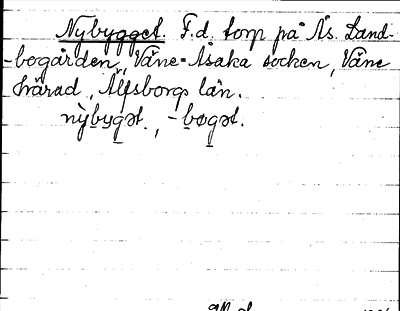 Nybygget. F.d. torp på Ås. Land-
-bogården, Väne-Åsaka socken, Väne
härad, Älfsborgs län.
nỳbygət., -bogət.